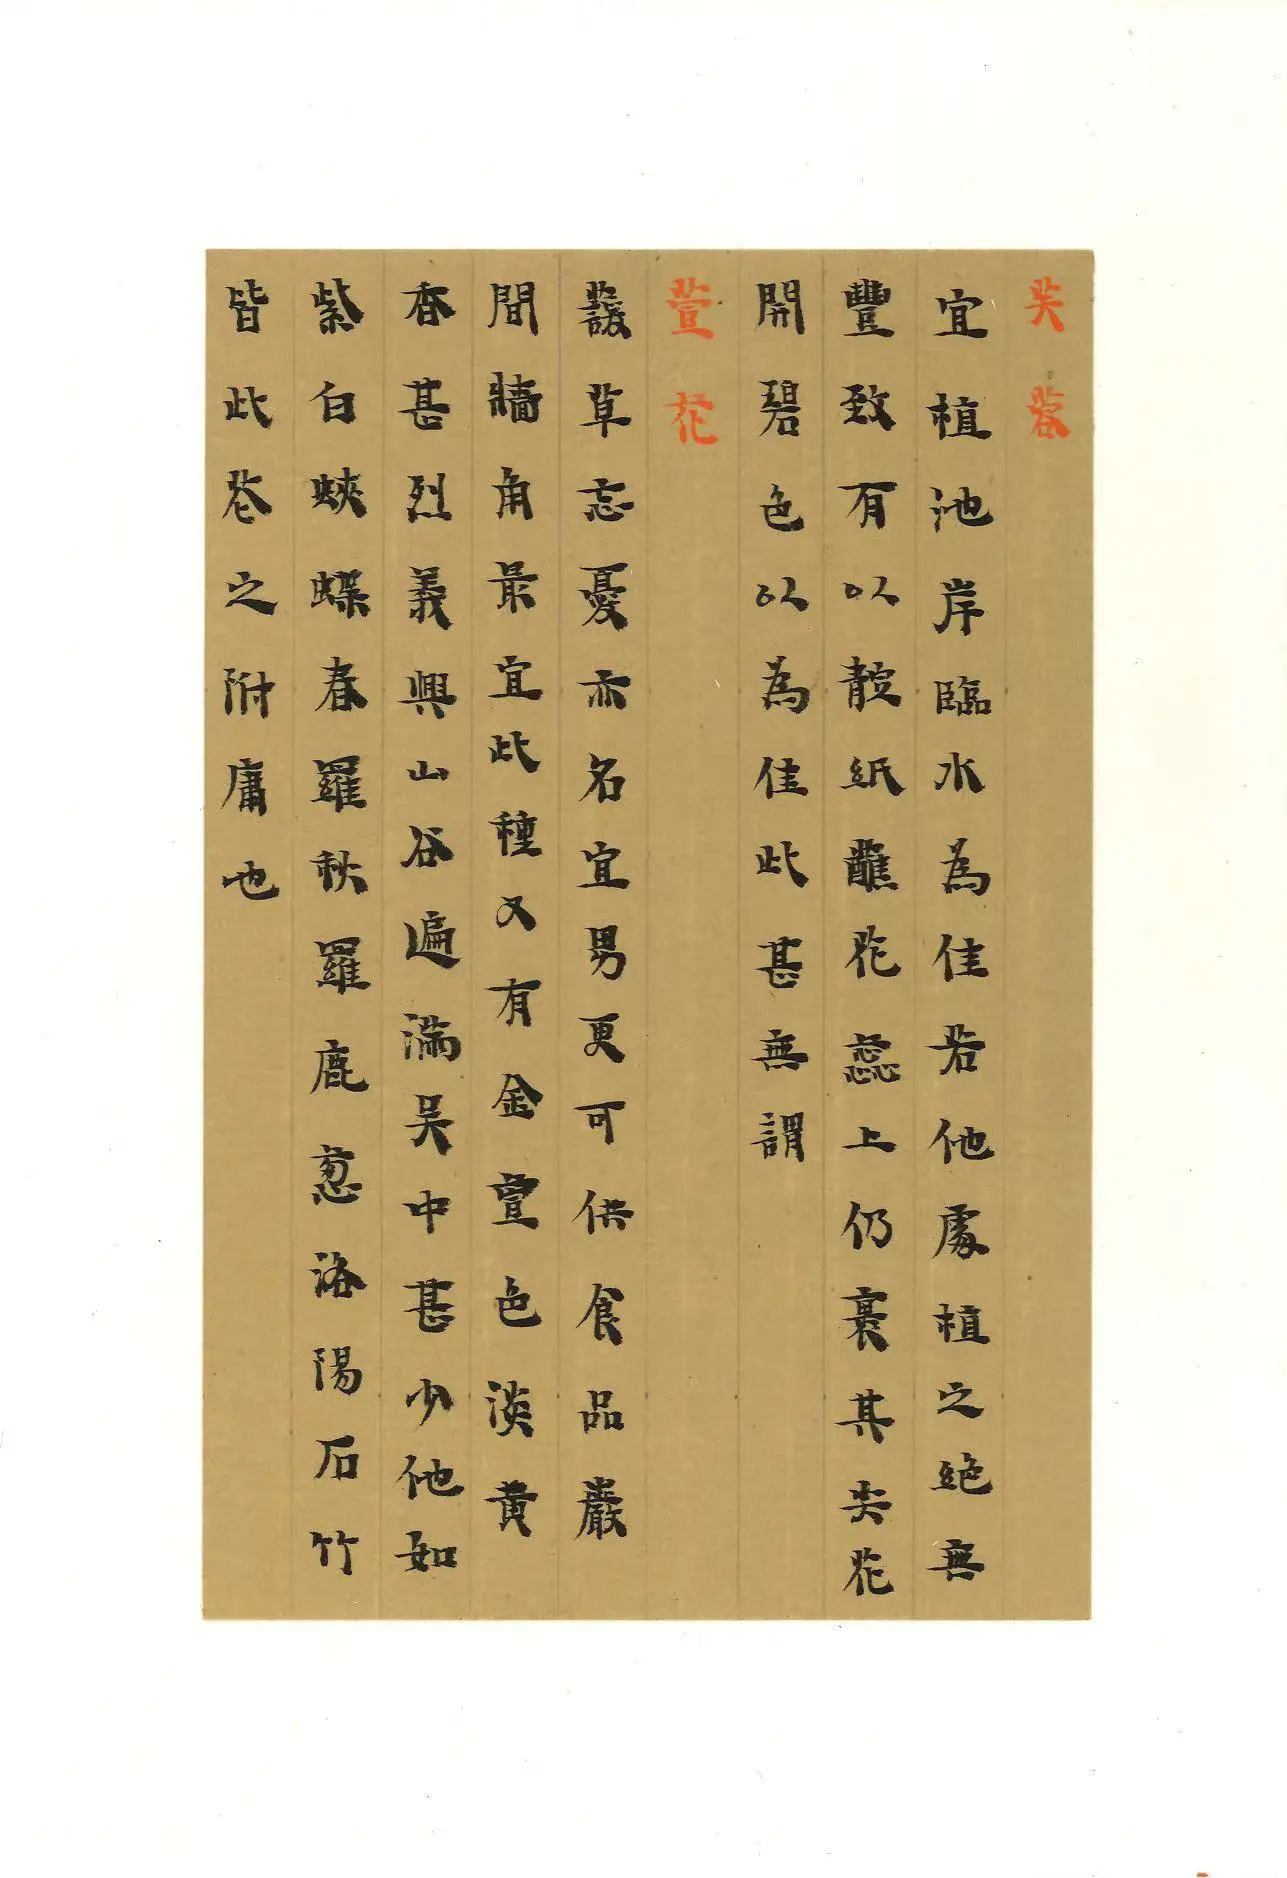 芙蓉
宜植池岸臨水為佳若他處植之絕無
豐致有以靛紙蘸花蕊上仍裹其尖花
開碧色以為佳此甚無謂
萱花
藼草忘憂亦名宜男更可供食品巖
間牆角最宜此種又有金萱色淡黃
香甚烈義興山谷遍滿吳中甚少他如
紫白蛺蝶春羅秋羅鹿蔥洛陽石竹
皆此花之附庸也